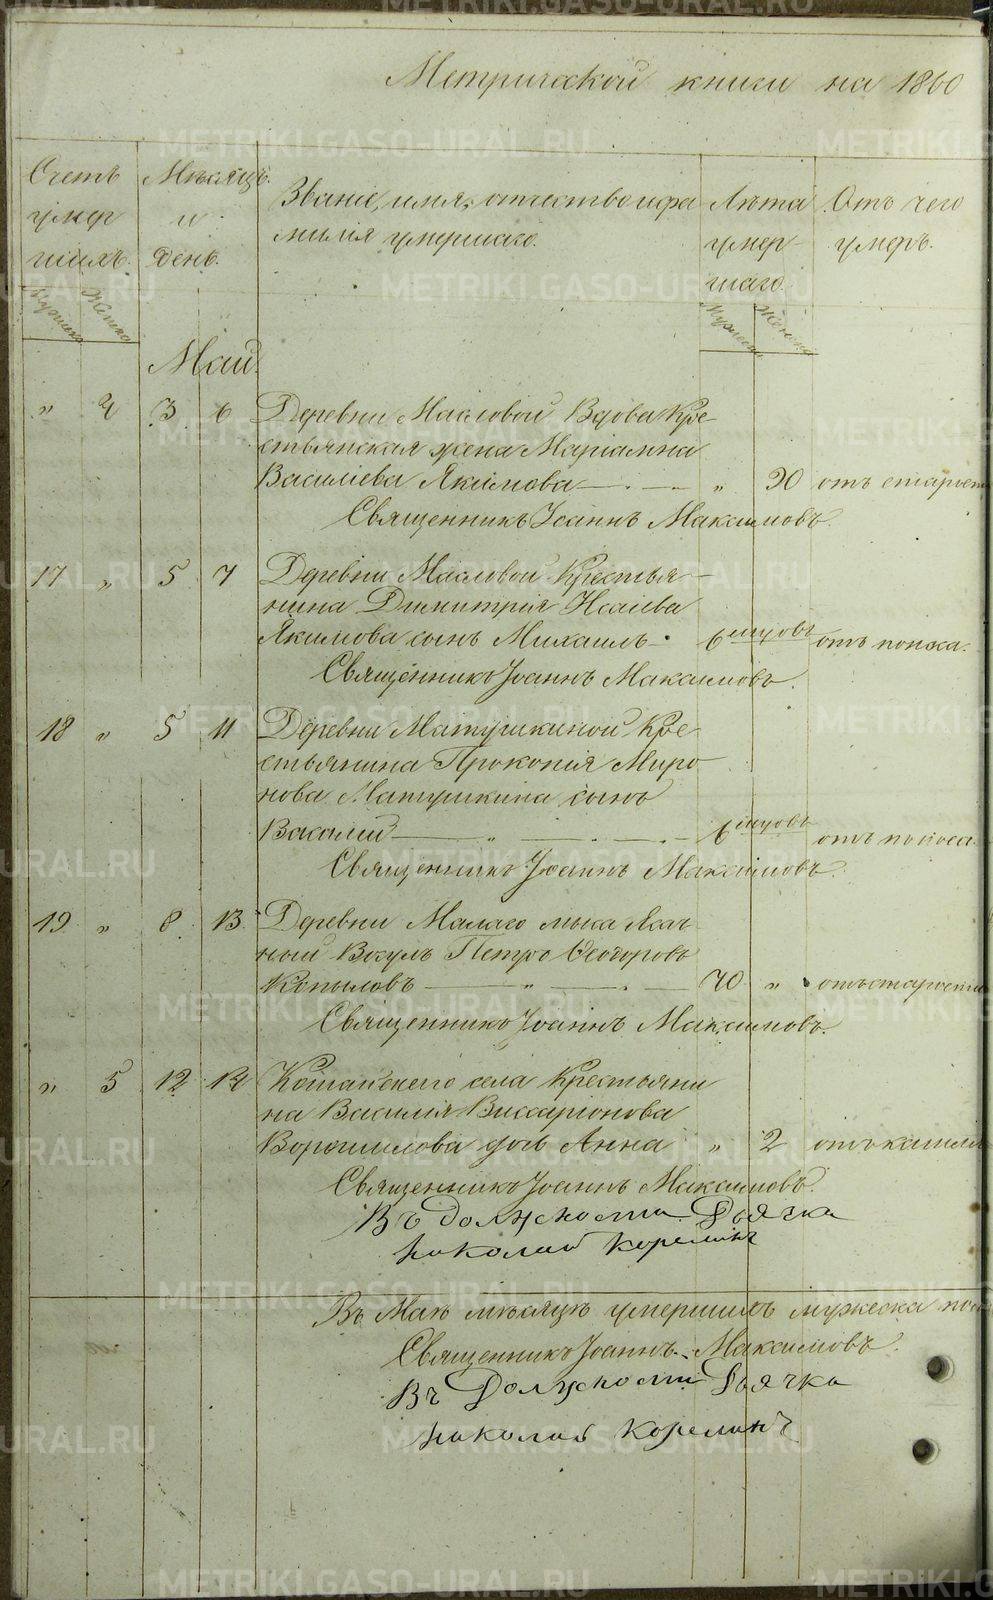 Метрической книги на 1860
Счетъ умершихъ.
Мужеска
Женска
Мѣсяцъ и день.
Званіе, имя, отчество и фамилия умершаго.
Лѣта умершаго.
Мужеска
Женска
Отъ чего умеръ.
Май.
" 4 3 6 Деревни Масловой Вдова Кре-
стьянская жена Маріамна
Василіева Якимова " 90 отъ старости
Священникъ Іоаннъ Максимовъ.
17 " 5 7 Деревни Масловой Крестья-
нина Димитрія Исаіева
Якимова сынъ Михаилъ 6 отъ поноса.
Священникъ Іоаннъ Максимовъ.
18 " 5 11 Деревни Матушкиной Кре-
стьянина Прокопія Миро
нова Матушкина сынъ
Василий " 6 отъ поноса
Священникъ Іоаннъ Максимовъ.
19 " 8 13 Деревни Малаго
Вогулъ Петръ Ѳеодоровъ
Копыловъ " 70 " отъ старости
Священникъ Іоаннъ Максимовъ.
" 5 12 14 Кошайскаго села Крестьяни
на Василія Виссаріонова
Ворошилова дочь Анна " 2 отъ кашля
Священникъ Іоаннъ Максимовъ.
Въ должности Дьячка
Николай Корелинъ
Въ Маѣ мѣсяцѣ умершихъ мужеска пола
Священникъ Іоаннъ Максимовъ.
Въ Должности Дьячка
Николай Корелинъ
METRIKI.GASO-URAL.RU